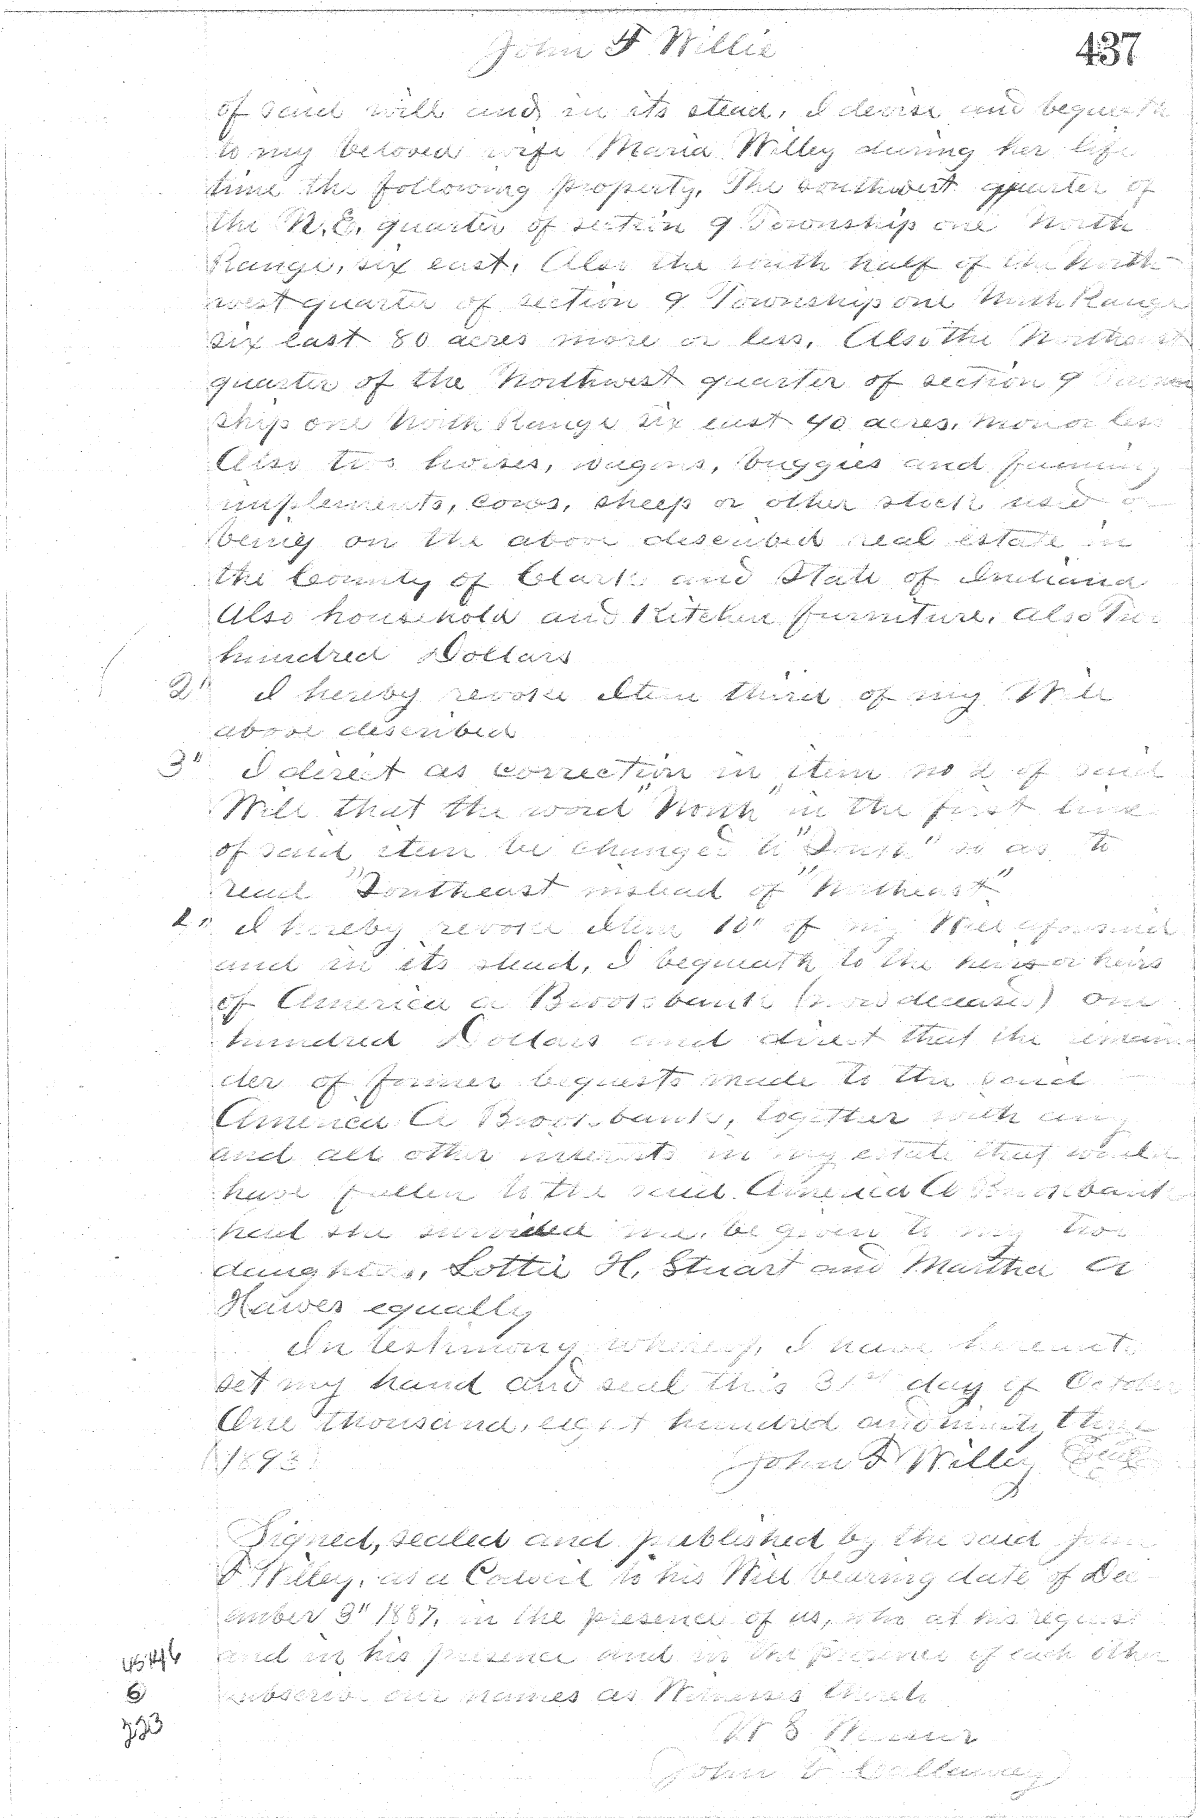 John F Willie
437
of said will and in its stead, I devise and bequeath
to my beloved wife Maria Willey during her life
time the following property. The southwest quarter of
the N.E. quarter of section 9 Township one North
Range, six east. Also the south half of the North
west quarter of section 9 Township one North Range
six east 80 acres more or less. Also the Northeast
quarter of the Northwest quarter of section 9 Town
ship one North Range six east 40 acres, more or less
Also two horses, wagons, buggies and farming
implements, cows, sheep or other stock used or
being on the above described real estate in
the County of Clark and State of Indiana
Also household and Kitchen furniture. Also
hundred Dollars
2" I hereby revoke Item third of my Will
above described
3" I direct as correction in item no 2 of said
Will that the word "North" in the first line
of said item be changed to "South" so as to
read "Southeast instead of "Northeast"
I hereby revoke Item 10" of my Will aforesaid
and in its stead, I bequeath to the heirs or heirs
of America A Brooksbank (now deceased) one
hundred Dollars and direct that the remain
der of former bequests made to the said
America A Brooksbank, together with any
and all other interests in my estate that would
have fallen to the said America A Brooksbank
had she survived me, be given to my two
daughters, Lottie H. Stuart and Martha A
Hawes equally
In testimony whereof, I have hereunto
set my hand and seal this 31st day of October
One thousand, eight hundred and ninety three
(1893)
John F Willey Seal
Signed, sealed and published by the said John
F Willey, as a Codicil to his Will bearing date of Dec
ember 3" 1887, in the presence of us, who at his request
and in his presence and in the presence of each other
subscribe our names as Witnesses thereto
W S
John Callaway
6
223